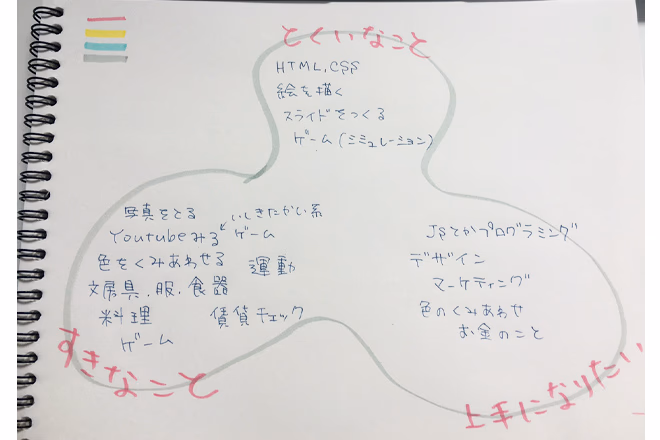 とくいなこと
HTML, CSS
絵を描く
スライドをつくる
ゲーム(シミュレーション)
写真をとる
いしきたかい系
Youtubeみる
ゲーム
色をくみあわせる
運動
文房具、服、食器
料理
賃貸チェック
ゲーム
すきなこと
JSとかプログラミング
デザイン
マーケティング
色のくみあわせ
お金のこと
上手になりたい